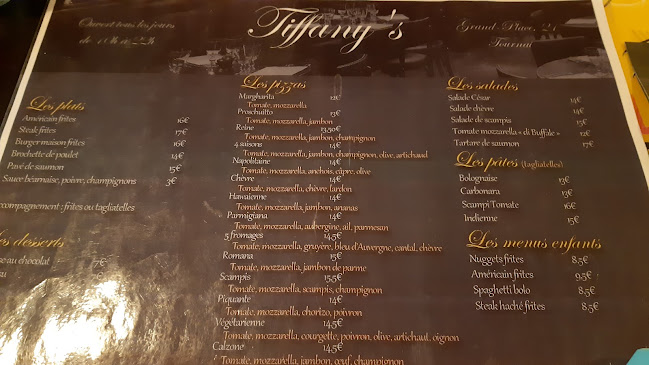 Ouvert tous les jours
Tiffany's
Grand-Place, 21
Tournai
Les plats
Américain frites 16€
Steak frites 17€
Burger maison frites 16€
Brochette de poulet 14€
Pavé de saumon 15€
Sauce béarnaise, poivre, champignons 3€
accompagnement ; frites ou tagliatelles
Les desserts
au chocolat
Les pizzas
Margharita 12€
Tomate, mozzarella
Proschuitto 13€
Tomate, mozzarella, jambon
Reine 13,50€
Tomate, mozzarella, jambon, champignon
4 saisons 14€
Tomate, mozzarella, jambon, champignon, olive, artichaud
Napolitaine 14€
Tomate, mozzarella, anchois, câpre, olive
Chèvre 14€
Tomate, mozzarella, chèvre, lardon
Hawaienne 14€
Tomate, mozzarella, jambon, ananas
Parmigiana 14€
Tomate, mozzarella, aubergine, ail, parmesan
5 fromages 14,5€
Tomate, mozzarella, gruyère, bleu d'Auvergne, cantal, chèvre
Romana 15€
Tomate, mozzarella, jambon de parme
Scampis 15,5€
Tomate, mozzarella, scampis, champignon
Piquante 14€
Tomate, mozzarella, chorizo, poivron
Végétarienne 14,5€
Tomate, mozzarella, courgette, poivron, olive, artichaut, oignon
Calzone 14,5€
Tomate, mozzarella, jambon, œuf, champignon
Les salades
Salade César 14€
Salade chèvre 14€
Salade de scampis 15€
Tomate mozzarella « di Buffale » 12€
Tartare de saumon 17€
Les pâtes (tagliatelles)
Bolognaise 13€
Carbonara 13€
Scampi Tomate 16€
Indienne 15€
Les menus enfants
Nuggets frites 8,5€
Américain frites 9,5€
Spaghetti bolo 8,5€
Steak haché frites 8,5€